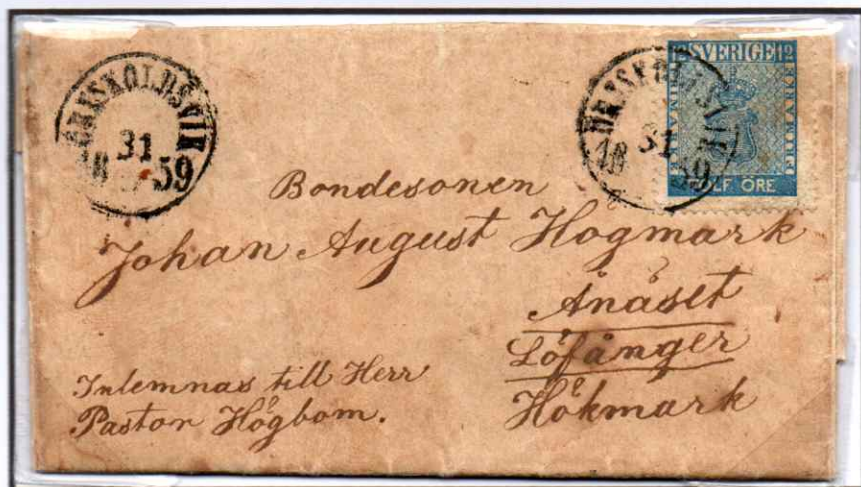 ÖRNSKOLDSVIK
31
18 59
ÖRNSKOLDSVIK
31
18 59
12 SVERIGE 12
FRIMÄRKE
FRIMÄRKE
TOLF ÖRE
Bondesonen
Johan August Hogmark
Ånäset
Löfånger
Hökmark
Inlemnas till Herr
Pastor Högbom.